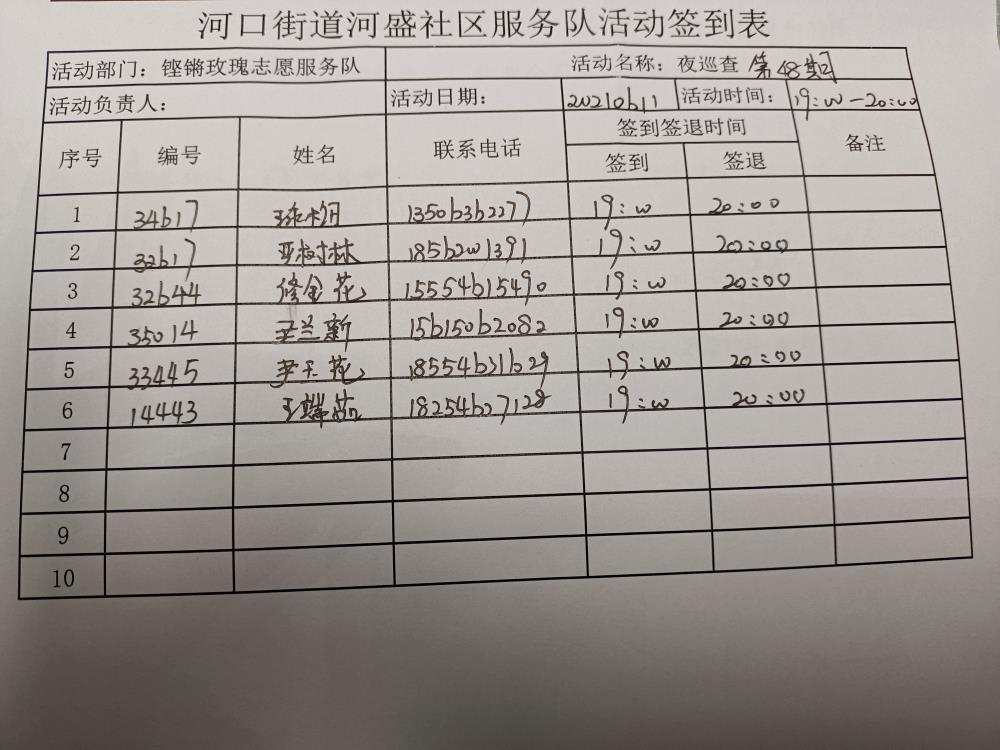 河口街道河盛社区服务队活动签到表
活动部门：铿锵玫瑰志愿服务队 活动名称：夜巡查 第48期
活动负责人： 活动日期： 20210611 活动时间： 19:00-20:00
序号 编号 姓名 联系电话 签到签退时间 备注
签到 签退
1 34617 13506362277 19:00 20:00
2 32617 18562001391 19:00 20:00
3 32644 修金花 15554615490 19:00 20:00
4 35014 王兰新 15615062082 19:00 20:00
5 33445 尹玉花 18554631629 19:00 20:00
6 14443 18254627128 19:00 20:00
7
8
9
10